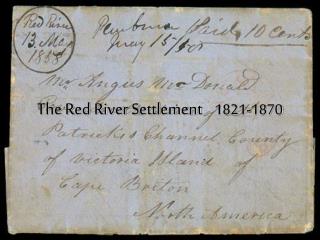 Red River
Pembina Paid 10 Cents
May 15/
Mr Angus McDonald
The Red River Settlement 1821-1870
Patrick's Channel County
of Victoria Island of
Cape Breton
North America